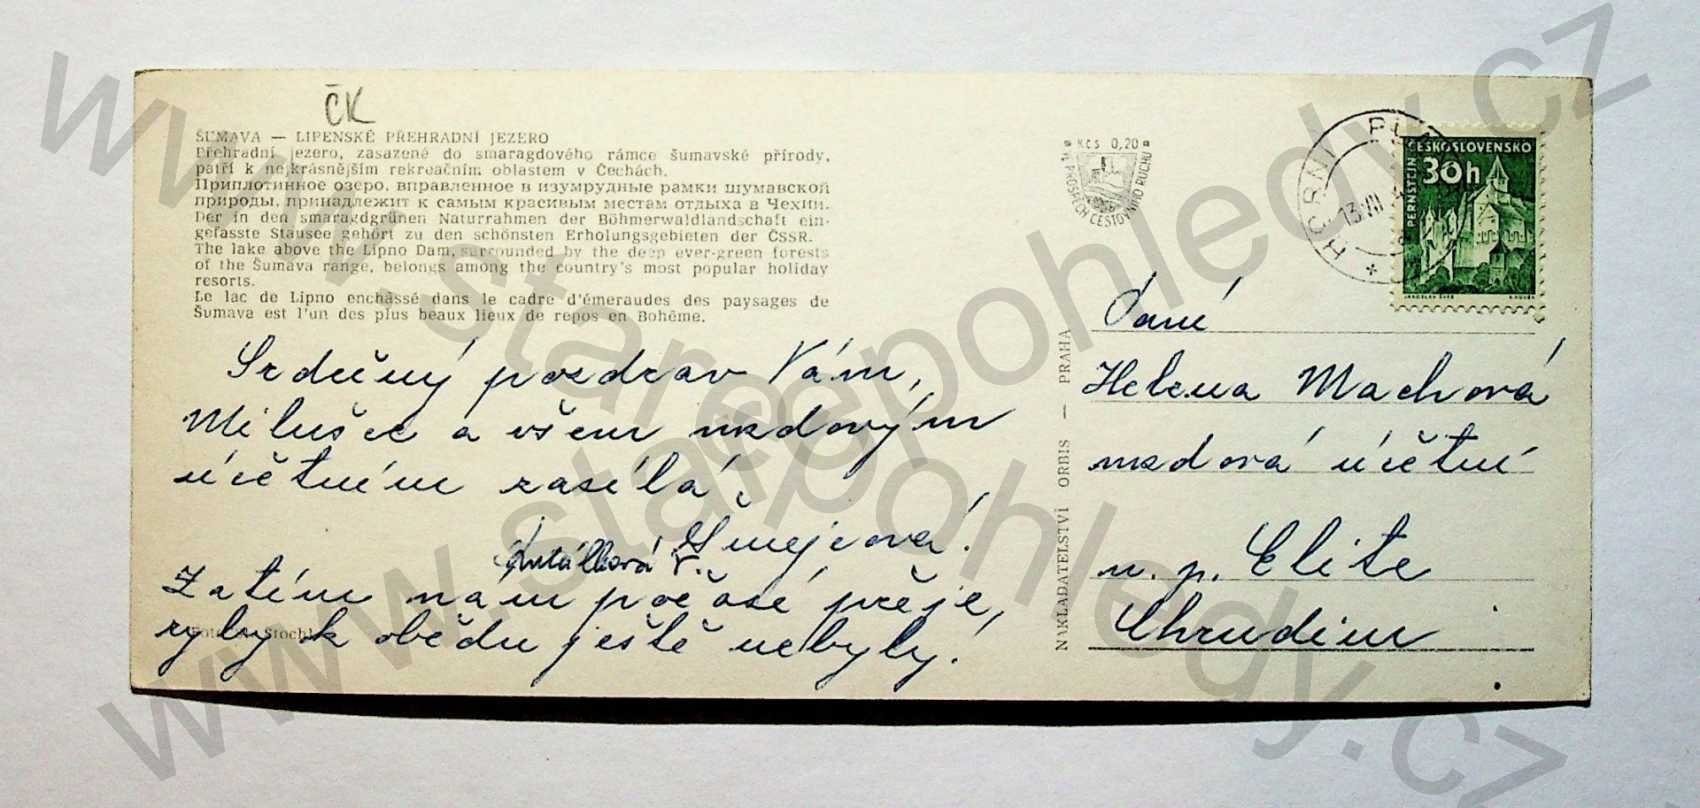 ČK
ŠUMAVA — LIPENSKÉ PŘEHRADNÍ JEZERO
Přehradní jezero, zasazené do smaragdového rámce šumavské přírody,
patří k nejkrásnějším rekreačním oblastem v Čechách.
Приплотинное озеро, вправленное в изумрудные рамки шумавской
природы, принадлежит к самым красивым местам отдыха в Чехии.
Der in den smaragdgrünen Naturrahmen der Böhmerwaldlandschaft ein-
gefasste Stausee gehört zu den schönsten Erholungsgebieten der ČSSR.
The lake above the Lipno Dam, surrounded by the deep ever-green forests
of the Šumava range, belongs among the country's most popular holiday
resorts.
Le lac de Lipno enchâssé dans le cadre d'émeraudes des paysages de
Šumava est l'un des plus beaux lieux de repos en Bohême.
Srdečný pozdrav Vám,
Milušce a všem mzdovým
účetním zasílá
Šmejcová!
Zatím nám počasí přeje,
ryby k obědu ještě nebyly!
Foto Stochl
NAKLADATELSTVÍ ORBIS — PRAHA
Kčs 0,20
VE PROSPĚCH CESTOVNÍHO RUCHU
HORNÍ PL
13.VII
ČESKOSLOVENSKO
30h
PERNŠTEJN
JAROSLAV ŠVÁB
Paní
Helena Machová
mzdová účetní
n. p. Elite
Chrudim
www.starepohledy.cz
www.starepohledy.cz